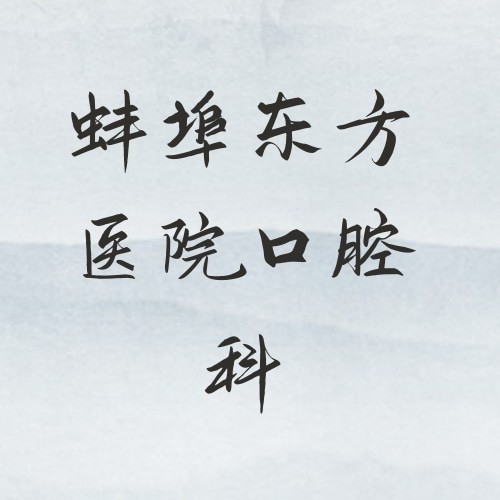 蚌埠东方
医院口腔
科